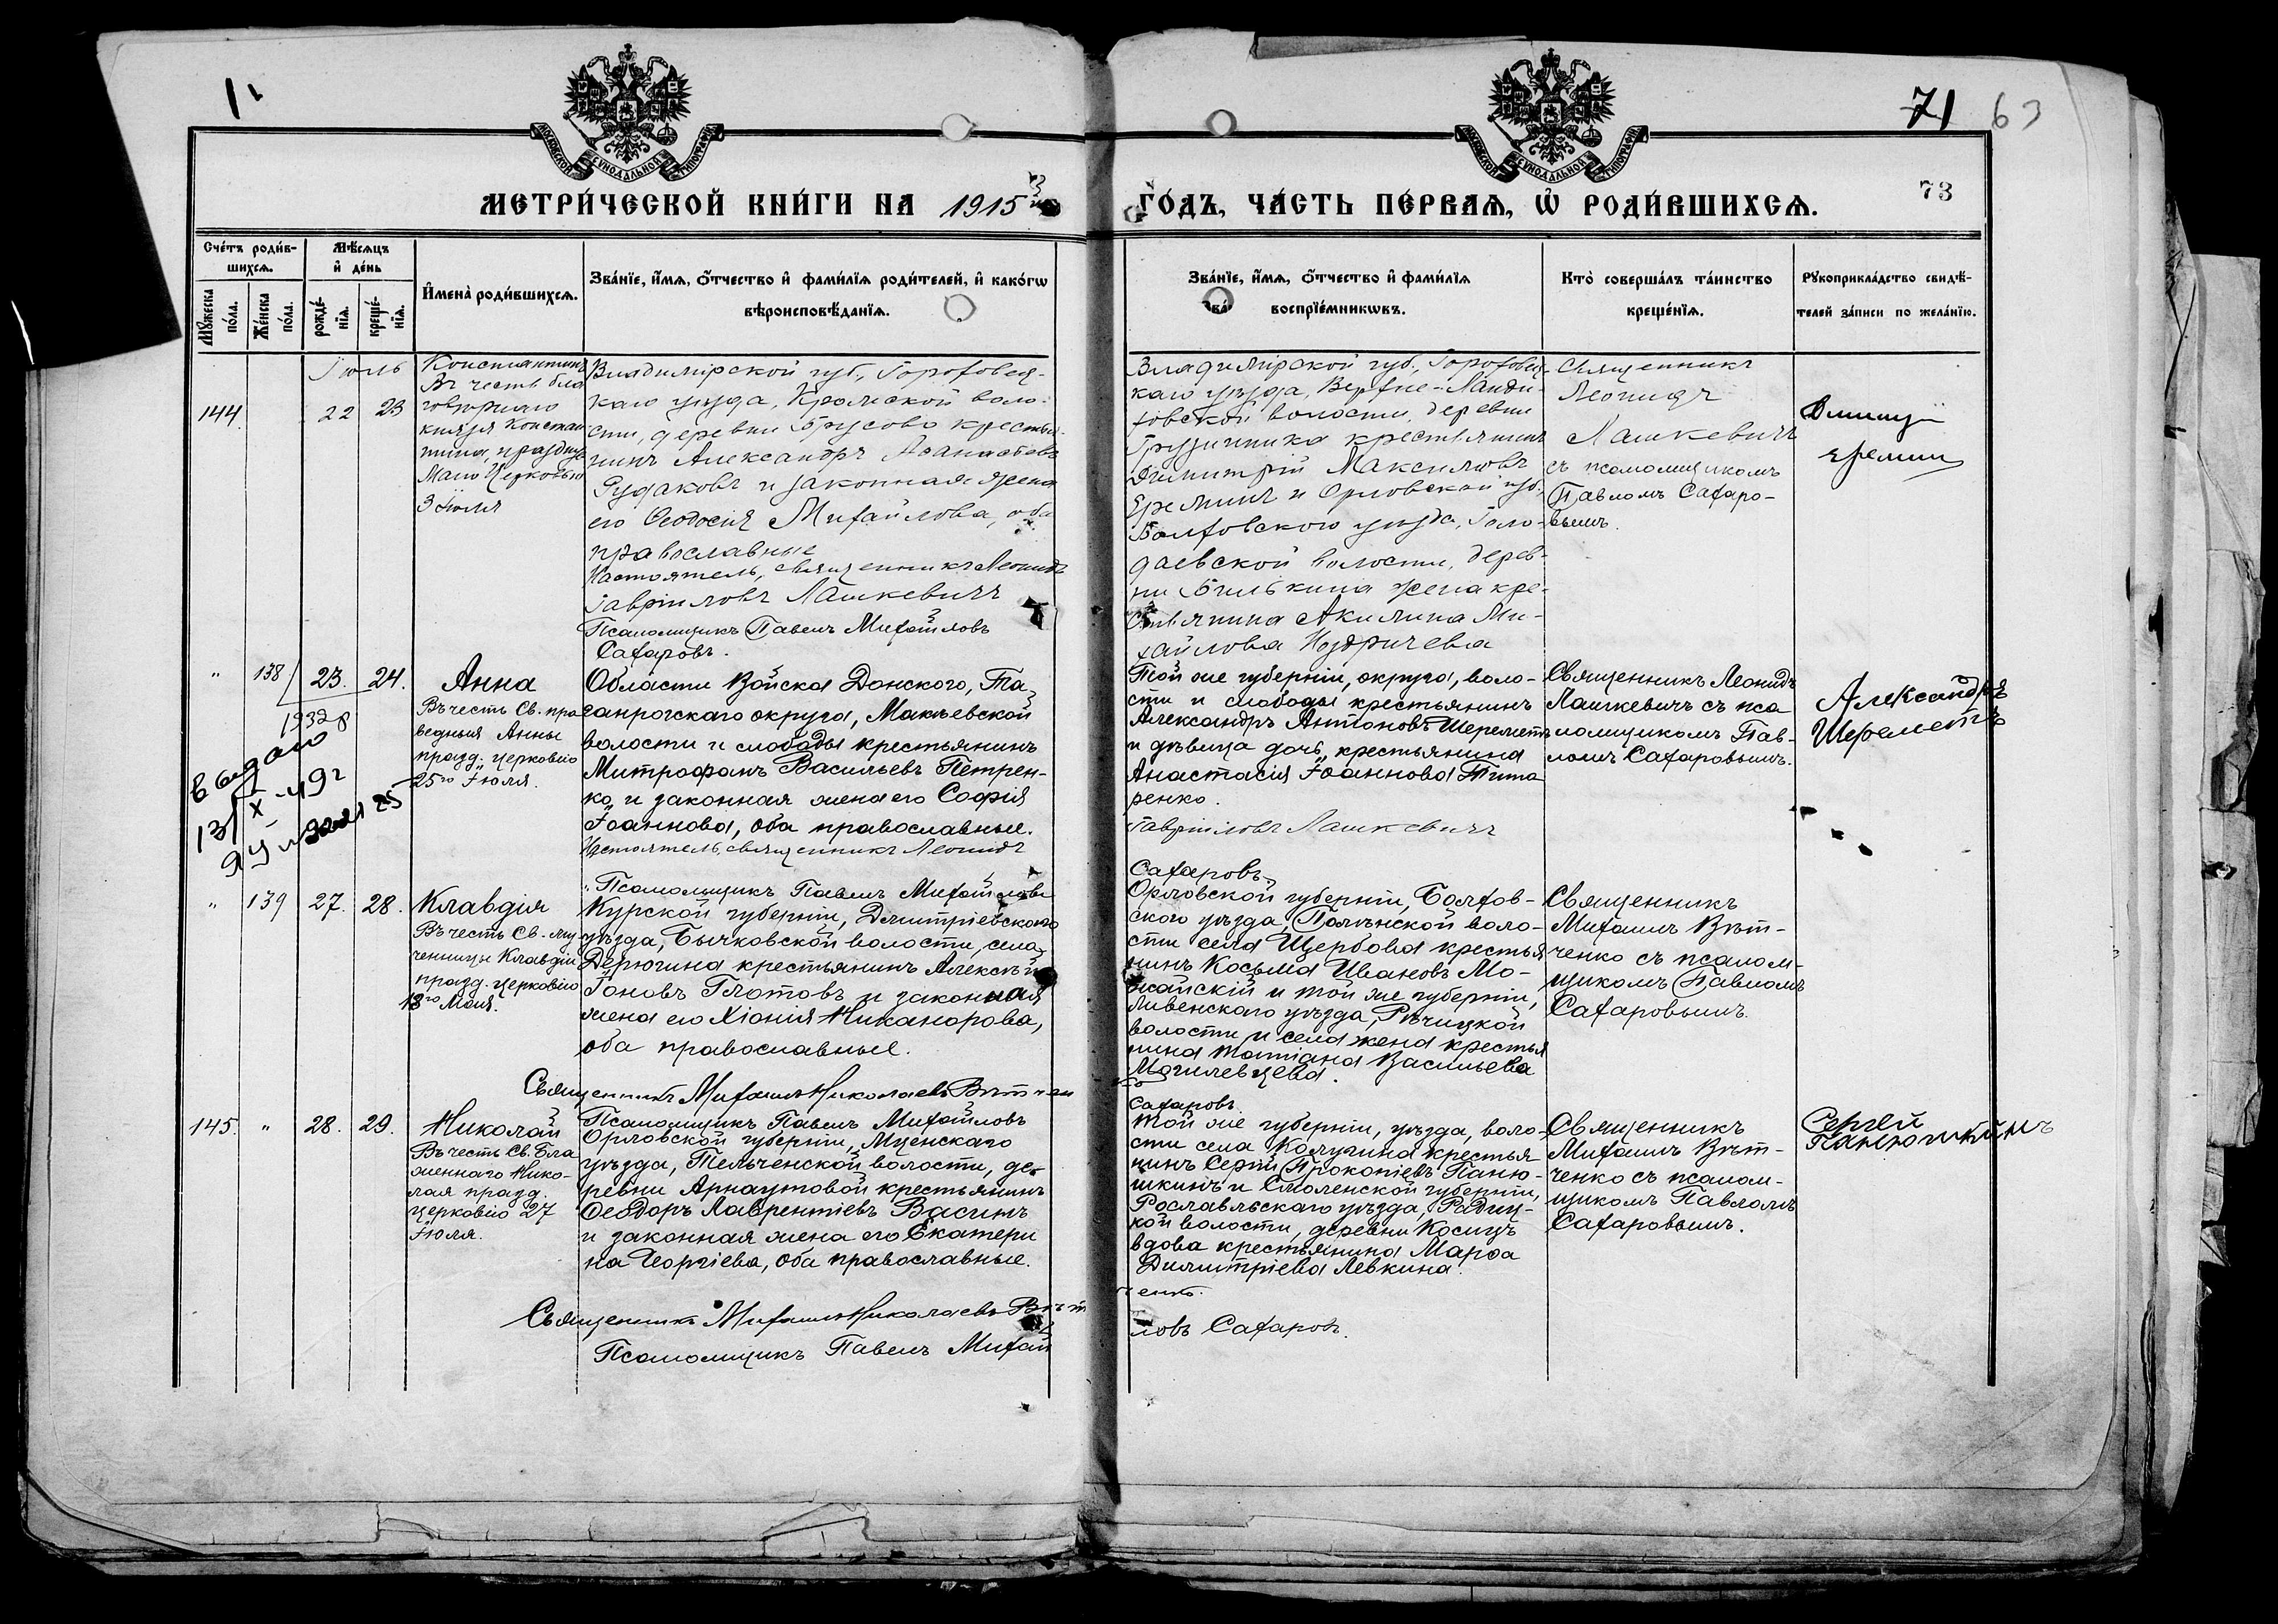 71 63
МОСКОВСКОЙ СУНОДАЛЬНОЙ ТИПОГРАФІИ
МОСКОВСКОЙ СУНОДАЛЬНОЙ ТИПОГРАФІИ
МЕТРИ́ЧЕСКОЙ КНИ́ГИ НА 1915
ГО́ДЪ, ЧА́СТЬ ПЕ́РВАѦ, Ѡ҆ РОДИ́ВШИХСѦ.
73
Сче́тъ роди́в-
шихсѧ.
Мѣ́сѧцъ
и҆ де́нь
Мꙋ́жеска по́ла.
Же́нска по́ла.
рожде́-нїѧ.
креще́-нїѧ.
И҆мена̀ роди́вшихсѧ.
Зва́нїе, и҆́мѧ, ѻ҆́тчество и҆ фами́лїѧ роди́телей, и҆ како́гѡ
вѣроисповѣ́данїѧ.
Зва́нїе, и҆́мѧ, ѻ҆́тчество и҆ фами́лїѧ
воспрїе́мникѡвъ.
Кто̀ соверша́лъ та́инство
креще́нїѧ.
Рꙋкоприкла́дство свидѣ́-
телей за́писи по жела́нїю.
Іюль
144. 22 23
Константинъ
Въ честь бла
говѣрнаго
князя Констан
тина, празднуе
маго Церковью
3 Іюля
Владимірской губ., Гороховец-
каго уѣзда, Кромской воло-
сти, деревни Брусова крестья-
нинъ Александръ Аѳанасьевъ
Рудаковъ и законная жена
его Ѳеодосія Михайлова, оба
православные
Настоятель, священникъ Леонидъ
Гавріиловъ Лашкевичъ
Псаломщикъ Павелъ Михайловъ
Сахаровъ.
Владимірской губ., Гороховец-
каго уѣзда, Верхне-Ланде-
ховской волости, деревни
крестьянинъ
Димитрій Максимовъ
Ереминъ и Орловской губ.,
Болховского уѣзда, Голо-
даевской волости, дерев-
ни жена кре-
стьянина Акилина Ми-
хайлова Ноздричева
Священникъ
Леонидъ
Лашкевичъ
съ псаломщикомъ
Павломъ Сахаро-
вымъ.
еремин
" 138 23. 24.
Анна
Въ честь Св. пра
ведныя Анны
празд. церковію
25го Іюля.
Области Войска Донского, Та-
ганрогскаго округа, Макѣевской
волости и слободы крестьянинъ
Митрофанъ Васильевъ Петрен-
ко и законная жена его Софія
Іоаннова, оба православные.
Настоятель, священникъ Леонидъ
Гавріиловъ Лашкевичъ
Той же губерніи, округа, воло-
сти и слободы крестьянинъ
Александръ Антоновъ Шереметъ
и дѣвица дочь крестьянина
Анастасія Іоаннова Тита
ренко.
Священникъ Леонидъ
Лашкевичъ съ пса
ломщикомъ Пав-
ломъ Сахаровымъ.
Александръ
Шереметъ
1932
выдано
13/X-49г
Псаломщикъ Павелъ Михайловъ
Сахаровъ
" 139 27. 28.
Клавдія
Въ честь Св. му
ченицы Клавдіи
празд. церковію
18го Мая.
Курской губерніи, Дмитріевскаго
уѣзда, Бычковской волости, села
Дерюгина крестьянинъ Алексѣй
Іоновъ Глотовъ и законная
жена его Хіонія Никанорова,
оба православные.
Священникъ Михаилъ Николаевъ
Псаломщикъ Павелъ Михайловъ
Сахаровъ.
Орловской губерніи, Болхов-
ского уѣзда, волo-
сти села Щербова крестья
нинъ Косьма Ивановъ Мо-
жайскій и той же губерніи,
Ливенскаго уѣзда, Рѣчицкой
волости и села жена крестья
нина Татіана Васильева
Могилевцева.
Священникъ
Михаилъ Вѣт-
ченко съ псалом-
щикомъ Павломъ
Сахаровымъ.
145. " 28. 29.
Николай
Въ честь Св. Бла
женнаго Нико-
лая празд.
церковію 27
Іюля.
Орловской губерніи, Мценскаго
уѣзда, Тельченской волости, де-
ревни Арнаутовой крестьянинъ
Ѳеодоръ Лаврентіевъ Васинъ
и законная жена его Екатери
на Георгіева, оба православные.
Священникъ Михаилъ Николаевъ Вѣт
ченко.
Псаломщикъ Павелъ Михай
ловъ Сахаровъ.
Той же губерніи, уѣзда, воло-
сти села Калугина крестья
нинъ Сергій Прокопіевъ Паню-
шкинъ и Смоленской губерніи,
Рославльскаго уѣзда, Радиц-
кой волости, деревни Косицъ
вдова крестьянина Марѳа
Димитріева Левкина.
Священникъ
Михаилъ Вѣт-
ченко съ псалом-
щикомъ Павломъ
Сахаровымъ.
Сергей